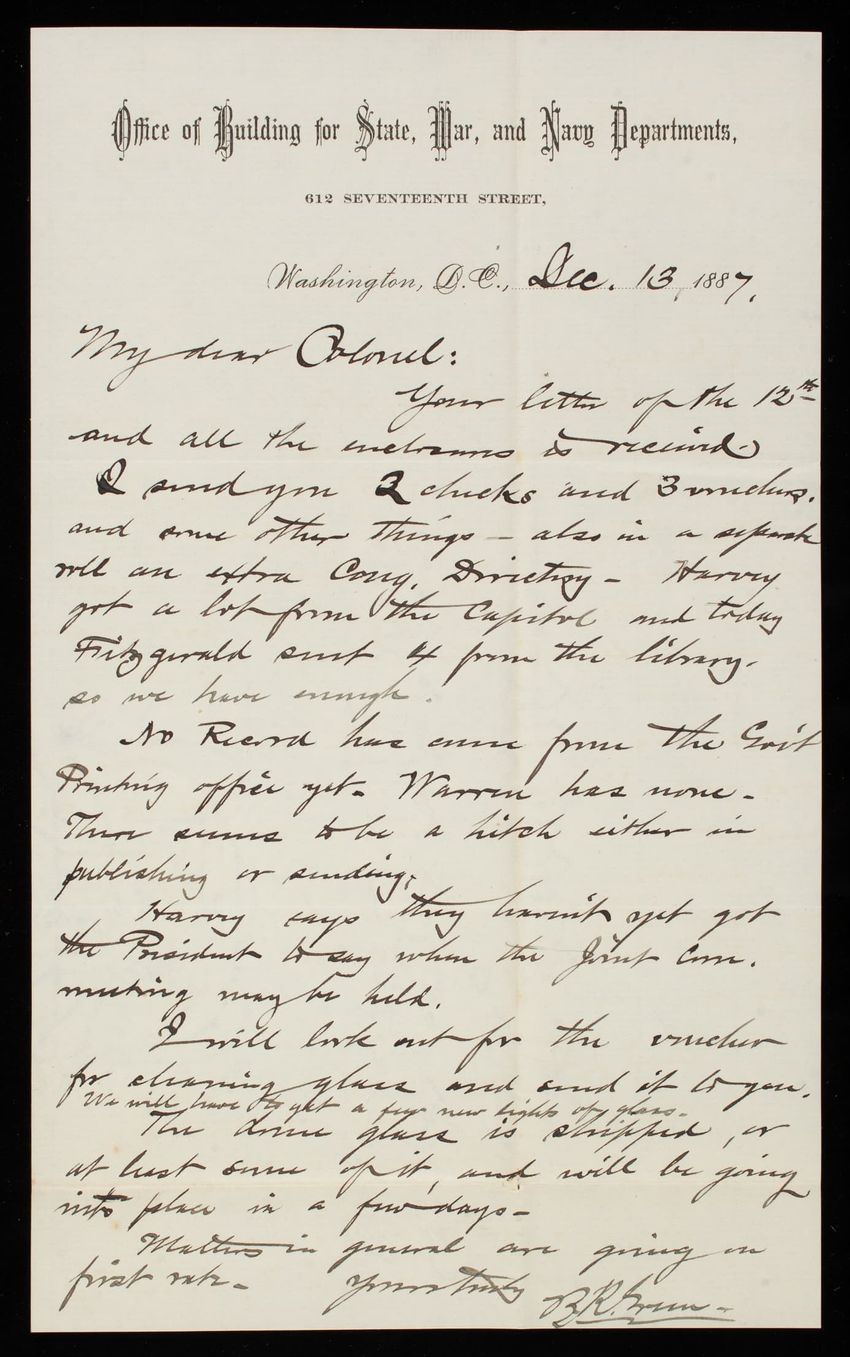 Office of Building for State, War, and Navy Departments,
612 SEVENTEENTH STREET,
Washington, D.C., Dec. 13, 1887.
My dear Colonel:
Your letter of the 12th
and all the enclosures is received.
I send you 2 checks and 3 vouchers.
and some other things – also in a separate
roll an extra Cong. Directory – Harvey
got a lot from the Capitol and today
Fitzgerald sent 4 from the library.
so we have enough.
No Record has come from the Gov't
Printing office yet – Warren has none –
There seems to be a hitch either in
publishing or sending.
Harvey says they haven't yet got
the President to say when the Joint Com.
meeting may be held.
I will look out for the voucher
for cleaning glass and send it to you.
We will have to get a few new lights of glass.
The dome glass is shipped, or
at least some of it, and will be going
into place in a few days –
Matters in general are going on
first rate – Yours truly
B.R. Green –